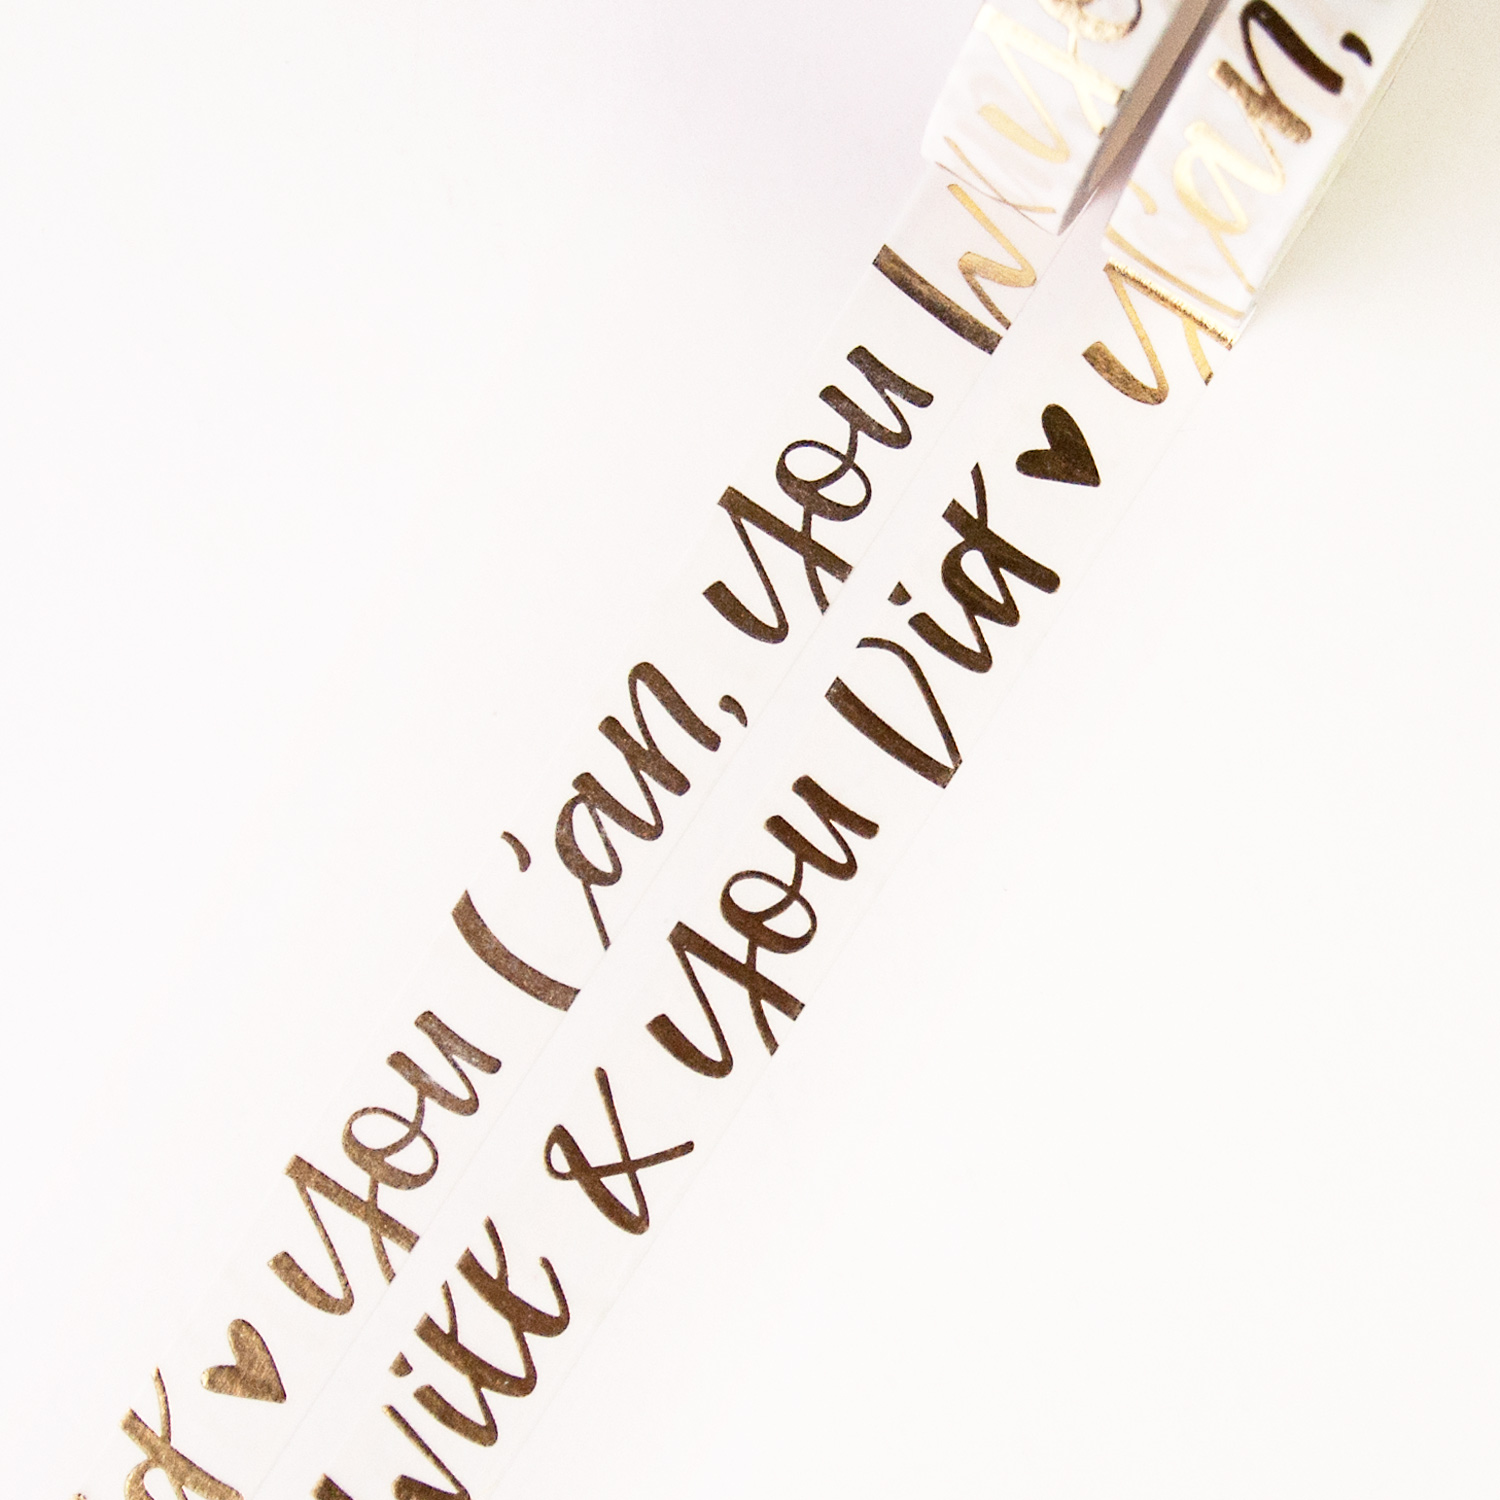 Did ♥ you Can, you W
you
Will & you Did ♥ y
Can,